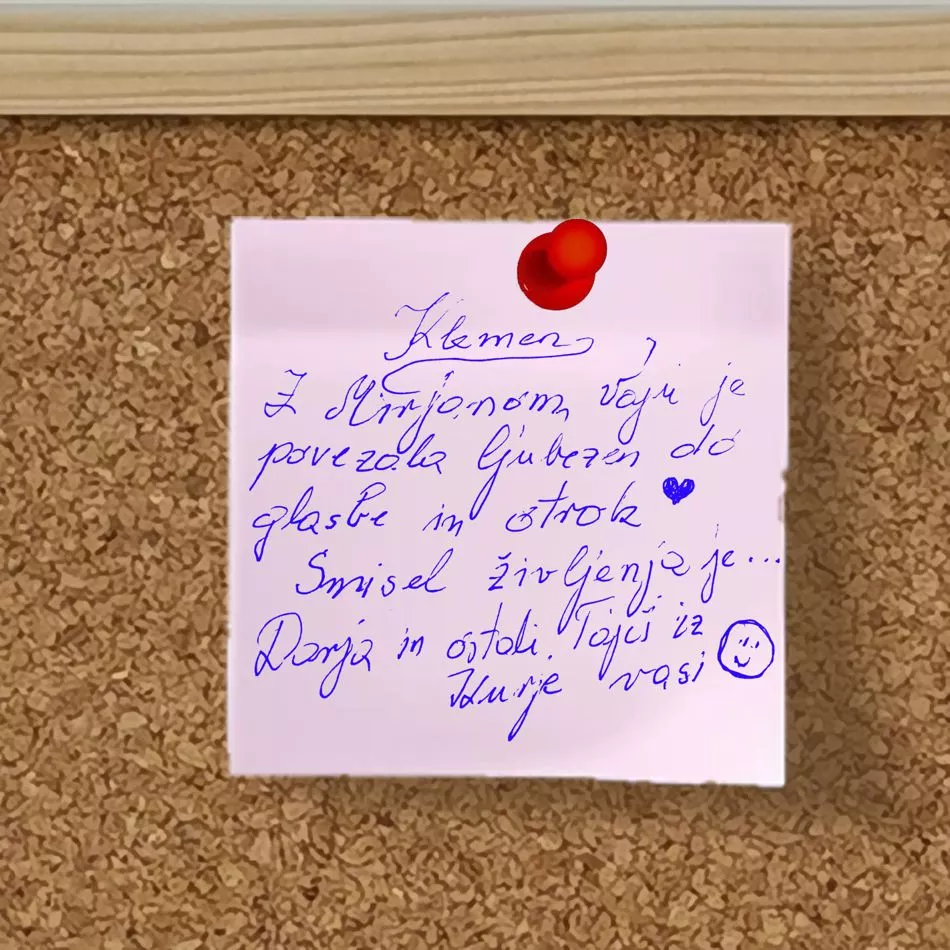 Klemen,
Z Mirjanom vaju je
povezala ljubezen do
glasbe in otrok ♥
Smisel življenja je...
Darja in ostali Tajiš iz
Kurje vasi ☺